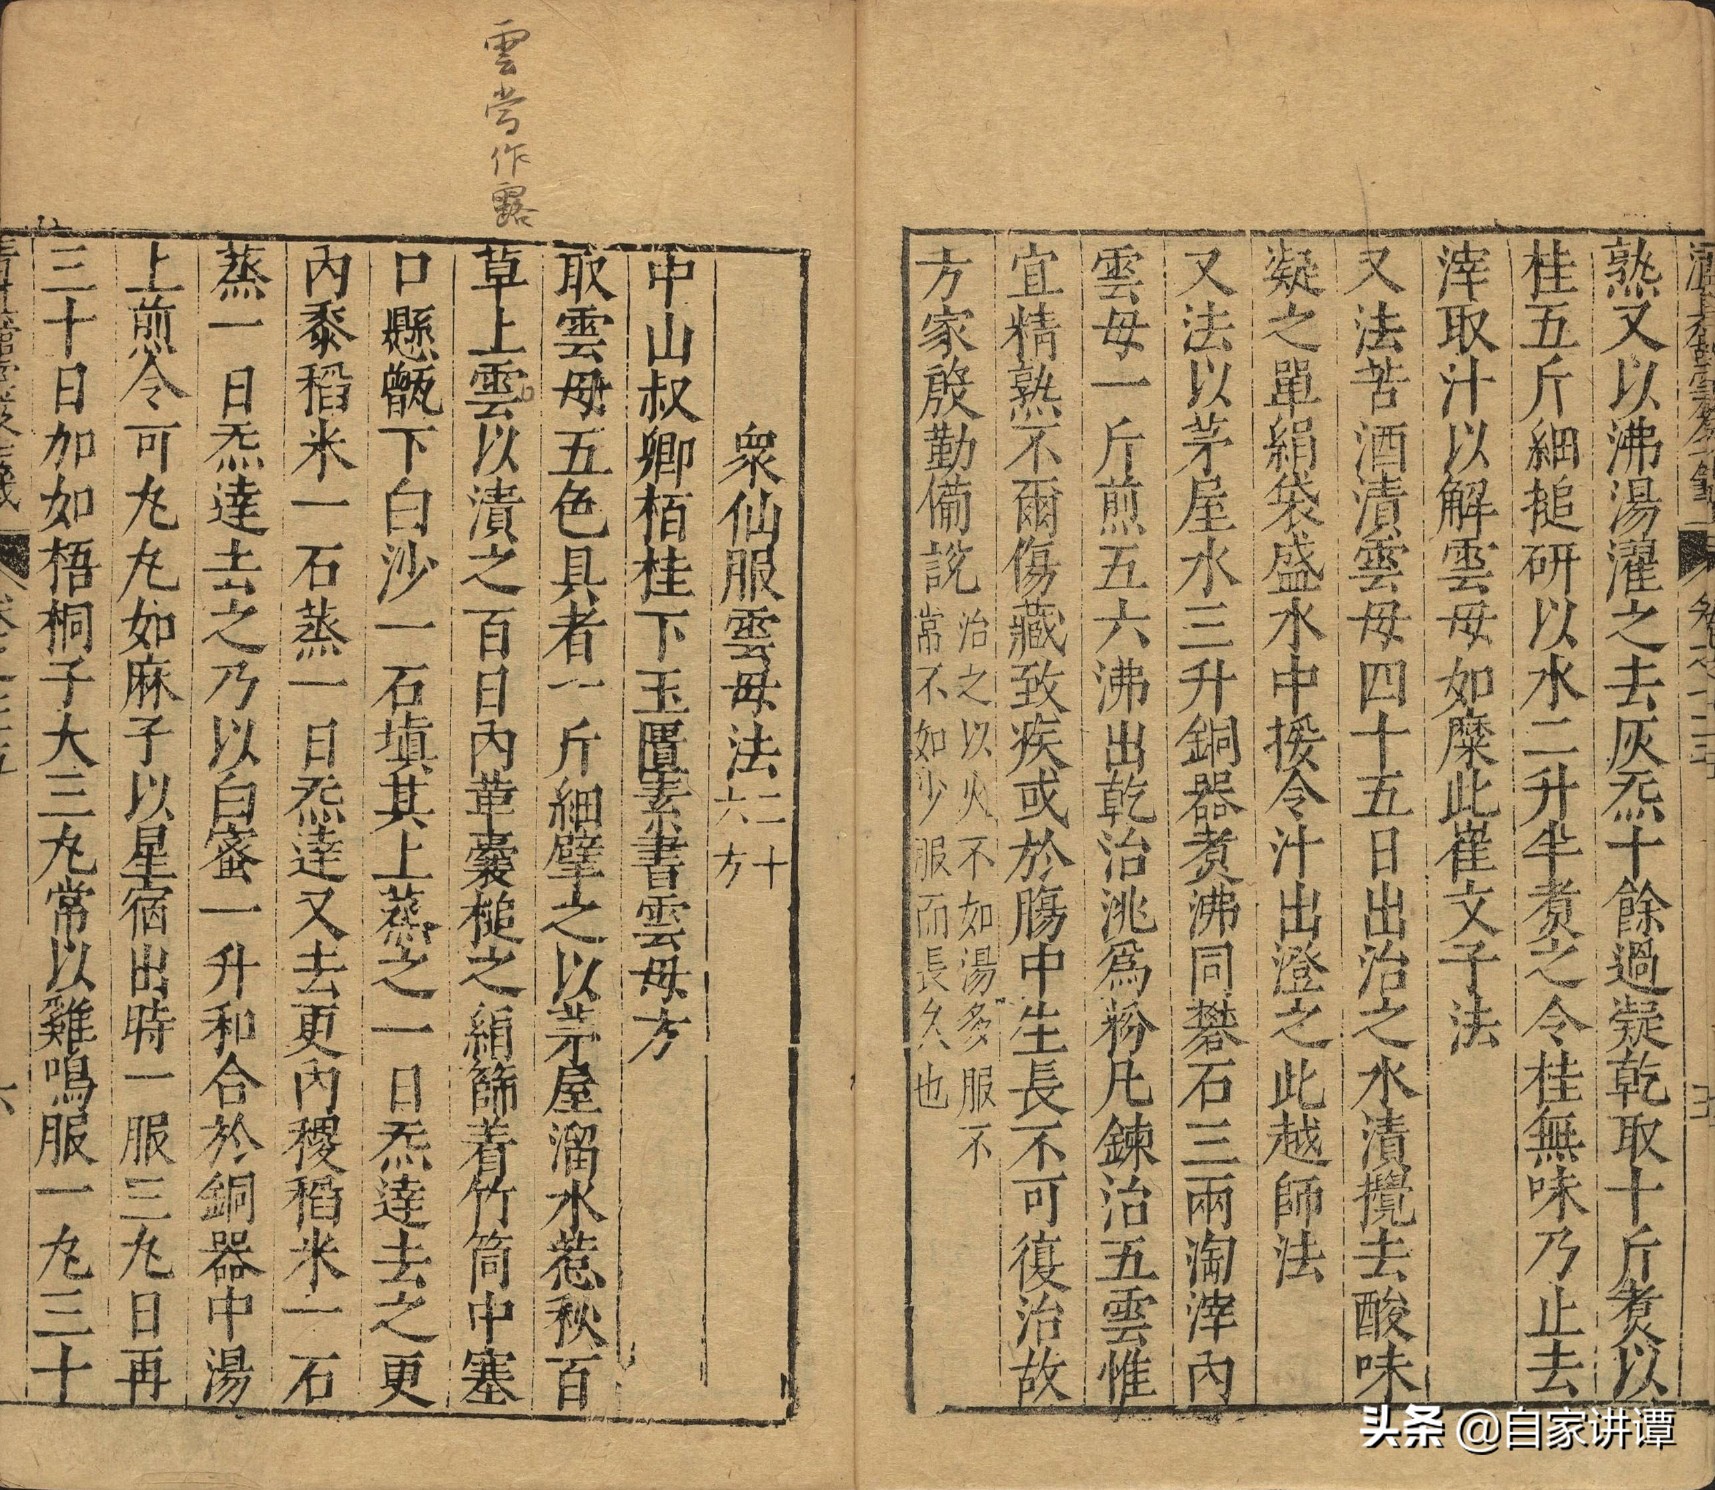 熟又以沸湯濯之去灰炁十餘過凝乾取十斤煮以
桂五斤細搥研以水二升半煮之令桂無味乃止去
滓取汁以解雲母如糜此崔文子法
又法苦酒漬雲母四十五日出治之水漬攪去酸味
凝之單絹袋盛水中挼令汁出澄之此越師法
又法以茅屋水三升銅器煮沸同礬石三兩淘滓內
雲母一斤煎五六沸出乾治洮爲粉凡鍊治五雲惟
宜精熟不爾傷藏致疾或於腸中生長不可復治故
方家殷勤備説
治之以火不如湯多服不
常不如少服而長久也
雲當作露
衆仙服雲母法
二十
六方
中山叔卿栢桂下玉匱素書雲母方
取雲母五色具者一斤細擘之以茅屋溜水惹秋百
草上雲以漬之百日內葦囊搥之絹篩着竹筒中塞
口懸甑下白沙一石填其上蒸之一日炁達去之更
內黍稻米一石蒸一日炁達又去更內稷稻米一石
蒸一日炁達去之乃以白蜜一升和合於銅器中湯
上煎令可丸丸如麻子以星宿出時一服三丸日再
三十日加如梧桐子大三丸常以雞鳴服一丸三十
头条 @自家讲谭